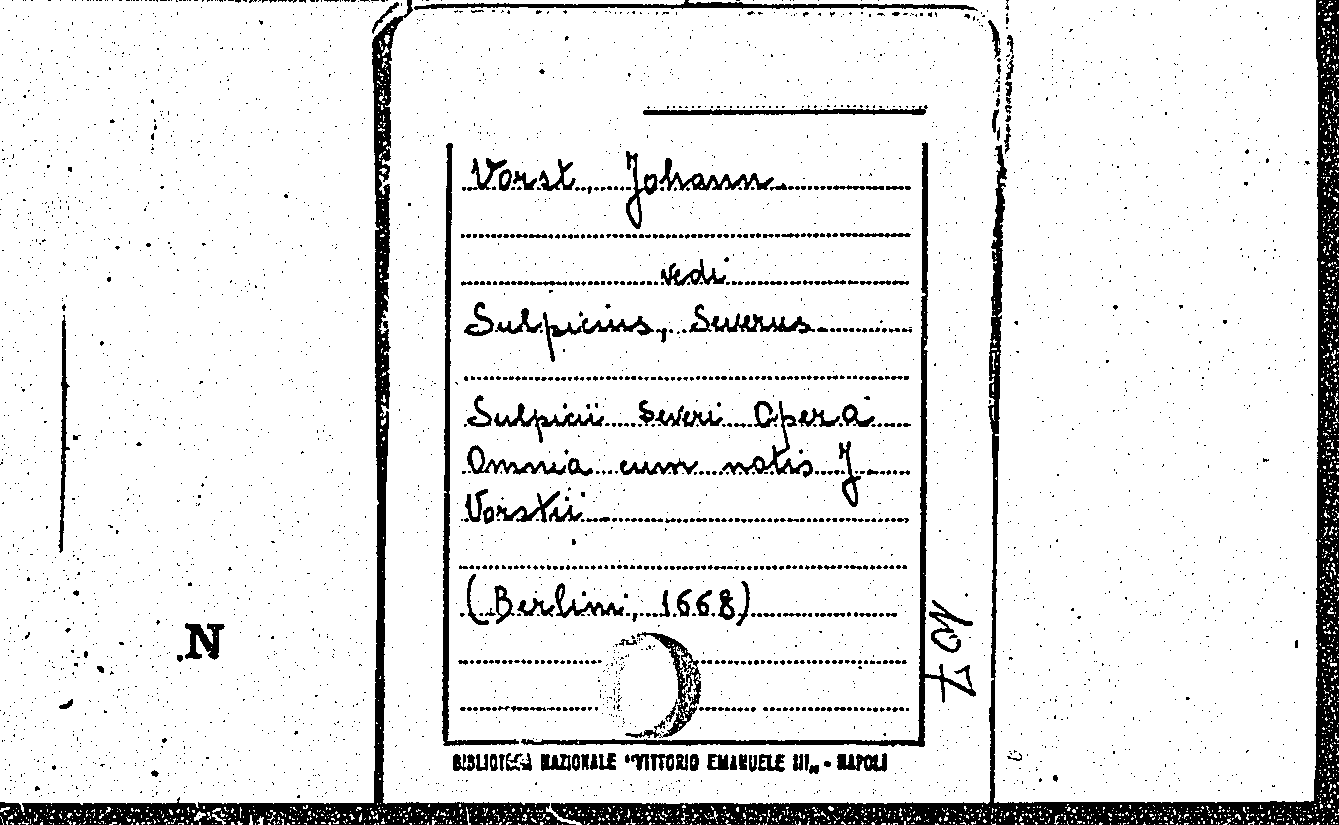 Vorst, Johann.
vedi
Sulpicius, Severus
Sulpicii Severi Opera
Omnia cum notis J.
Vorstii
(Berlini, 1668)
N
BIBLIOTECA NAZIONALE "VITTORIO EMANUELE III„ - NAPOLI